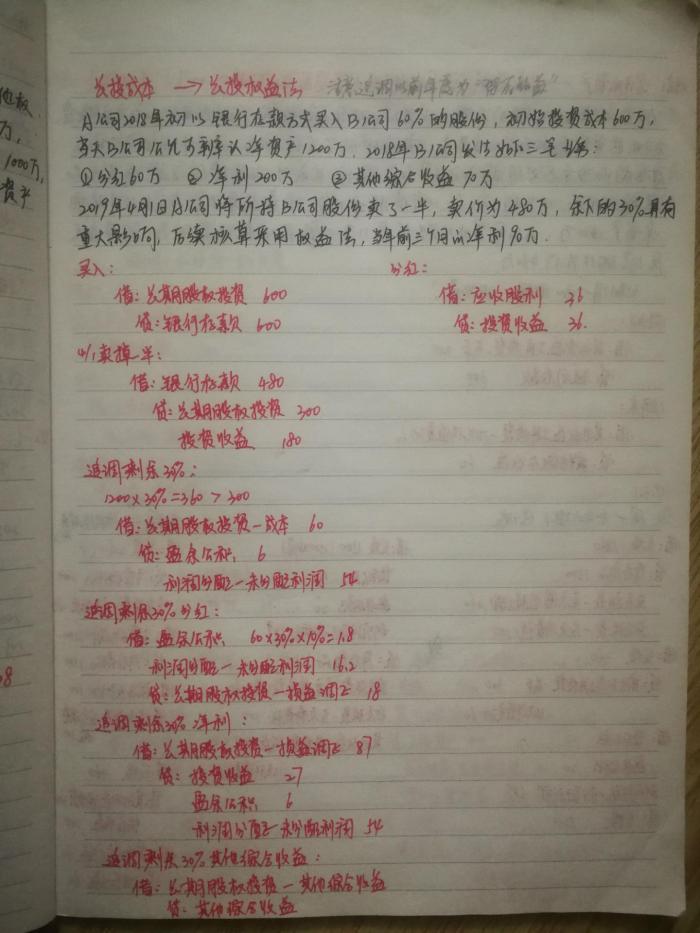 长投成本 → 长投权益法 注意追调以前年度为“留存收益”
A公司2018年初以银行存款方式买入B公司60%的股份,初始投资成本600万,
当天B公司公允可辨认净资产1200万,2018年B公司发生如下三笔业务:
①分红60万 ②净利200万 ③其他综合收益70万
2019年4月1日A公司将所持B公司股份卖了一半,卖价为480万,余下的30%具有
重大影响,后续核算采用权益法,当年前三个月的净利90万.
买入: 分红:
借:长期股权投资 600 借:应收股利 36
贷:银行存款 600 贷:投资收益 36.
4/1卖掉一半:
借:银行存款 480
贷:长期股权投资 300
投资收益 180
追调剩余30%:
1200×30%=360>300
借:长期股权投资—成本 60
贷:盈余公积 6
利润分配—未分配利润 54
追调剩余30%分红:
借:盈余公积 60×30%×10%=1.8
利润分配—未分配利润 16.2
贷:长期股权投资—损益调正 18
追调剩余30%净利:
借:长期股权投资—损益调正 87
贷:投资收益 27
盈余公积 6
利润分配—未分配利润 54
追调剩余30%其他综合收益:
借:长期股权投资—其他综合收益
贷:其他综合收益
他权
万,
1000万,
资产
8